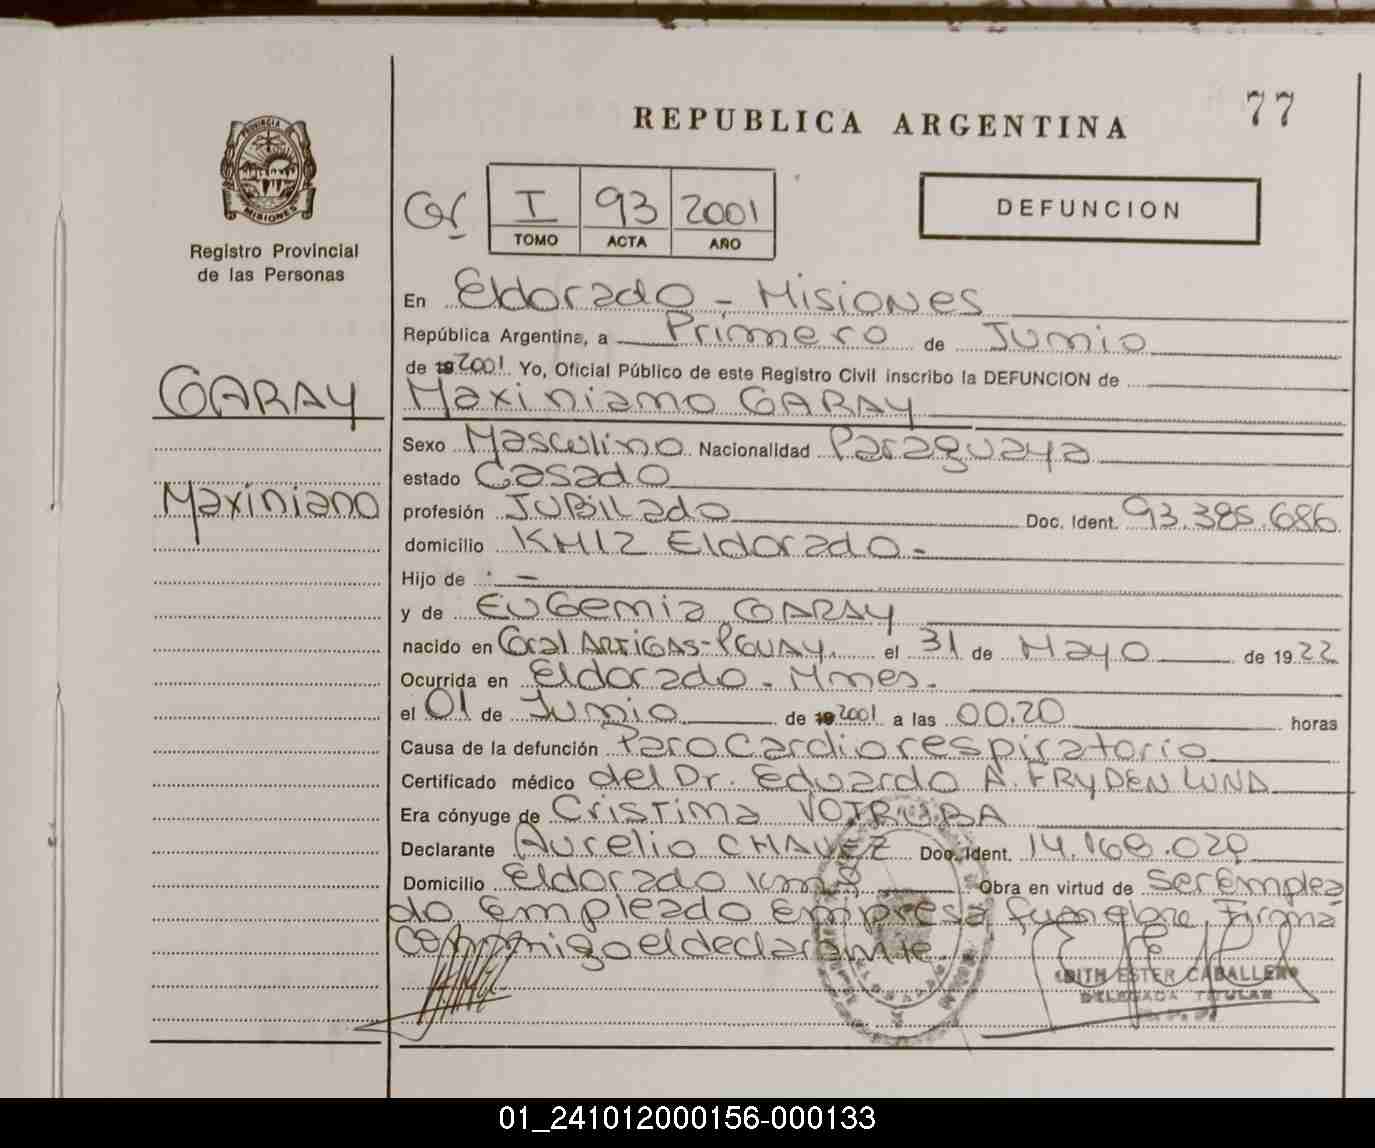 77
REPUBLICA ARGENTINA
PROVINCIA DE
MISIONES
Registro Provincial
de las Personas
I 93 2001
TOMO ACTA AÑO
DEFUNCION
En Eldorado - Misiones
República Argentina, a Primero de Junio
de 19 2001. Yo, Oficial Público de este Registro Civil inscribo la DEFUNCION de
GARAY
Maxiniano GARAY
Sexo Masculino Nacionalidad Paraguaya
estado Casado
Maxiniano
profesión JUBILado Doc. Ident. 93.385.686
domicilio KM12 Eldorado -
Hijo de -
y de EUGenia GARAY
nacido en Gral ARTIGAS-PGUAY. el 31 de Mayo de 1922
Ocurrida en Eldorado - Mnes.
el 01 de Junio de 19 2001 a las 00.20 horas
Causa de la defunción Paro Cardiorespiratorio
Certificado médico del Dr. Eduardo A. FRYDEN LUND
Era cónyuge de Cristina VOTRUBA
Declarante Aurelio CHAVEZ Doc. Ident. 14.168.029
Domicilio Eldorado Km Obra en virtud de Ser Emplea
do Empleado Empresa fuenebre. Firma
conmigo el declarante
EDITH ESTER CABALLERO
DELEGADA TITULAR
01_241012000156-000133